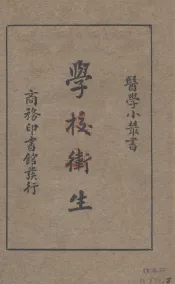 醫學小叢書
學校衛生
商務印書館發行